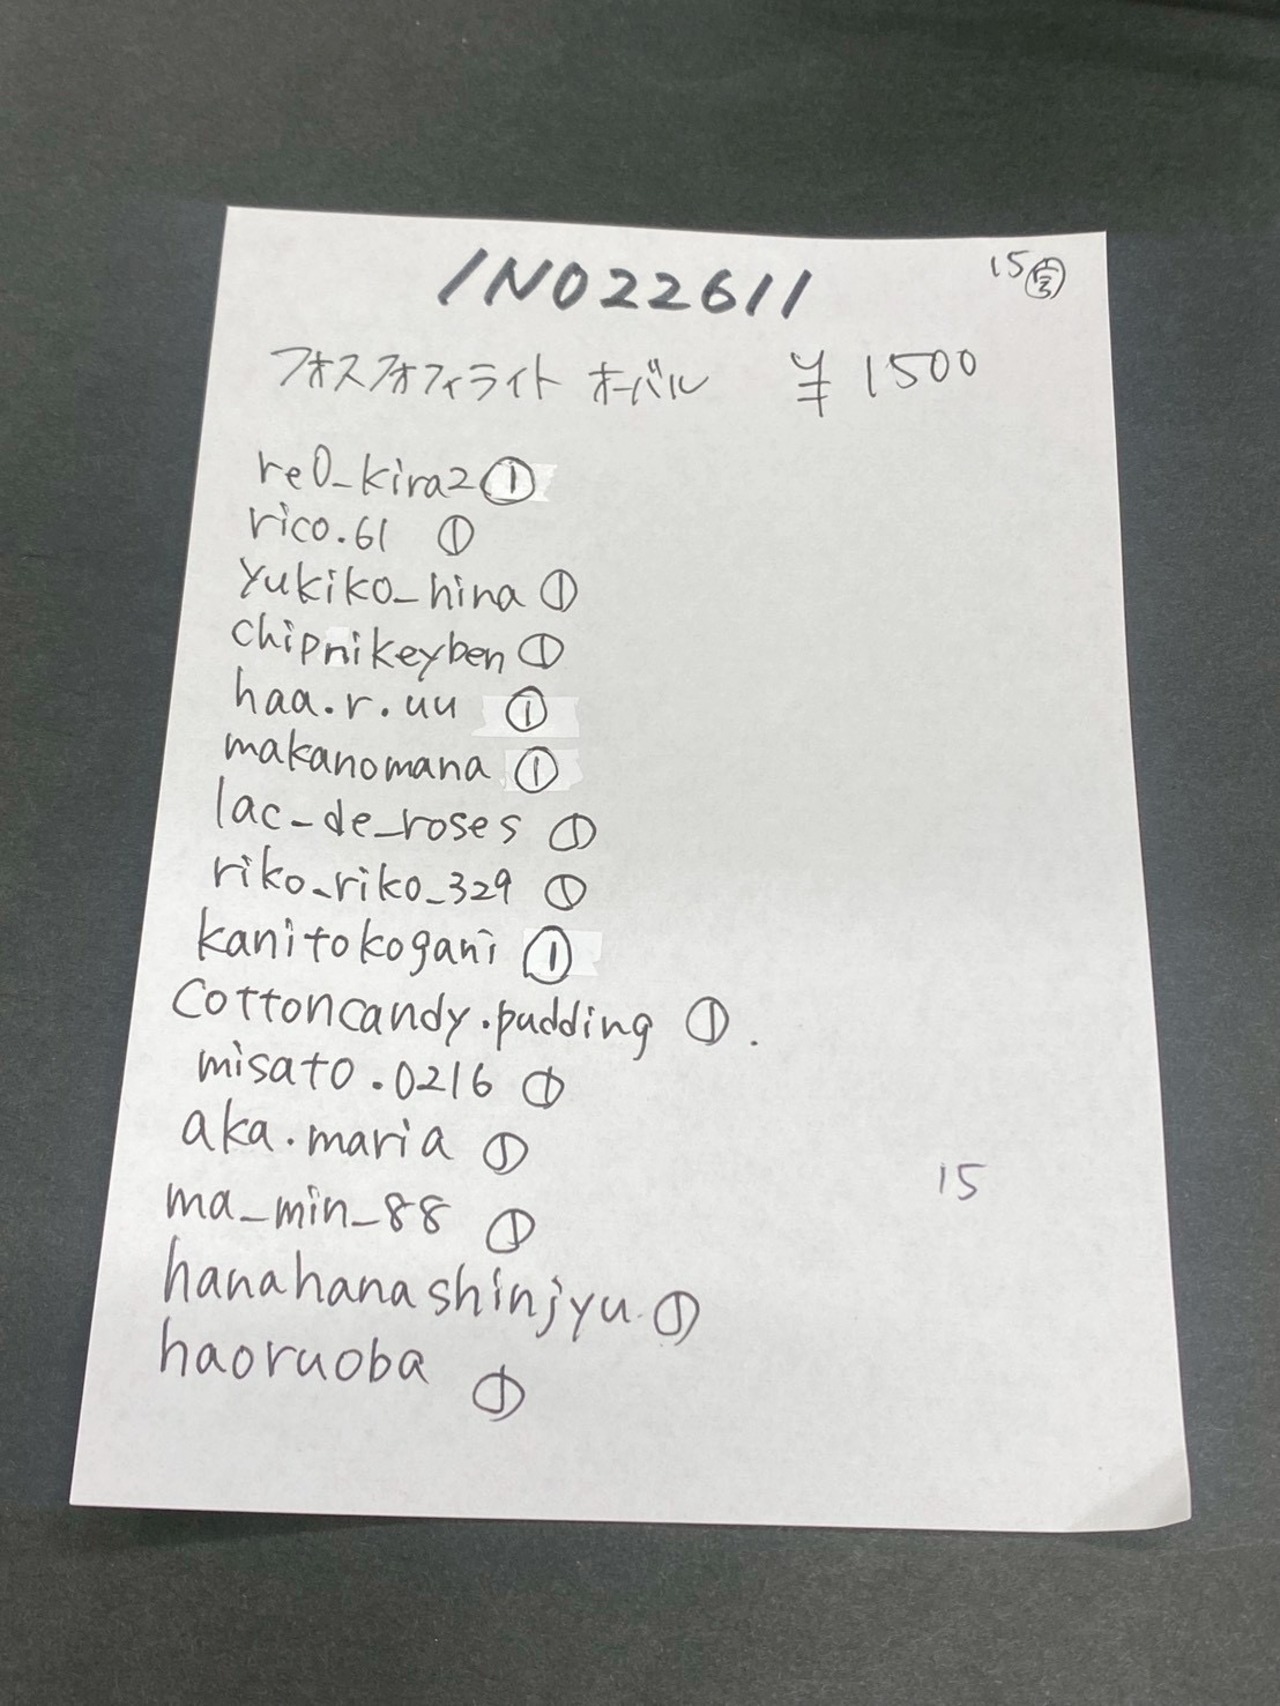 INO22611
15
フォスフォフィライト オーバル ¥1500
re0_kira2 ①
rico.61 ①
yukiko_hina ①
chipnikeyben ①
haa.r.uu ①
makanomana ①
lac_de_roses ①
riko_riko_329 ①
kanitokogani ①
cottoncandy.pudding ①.
misato.0216 ①
aka.maria ①
ma_min_88 ①
15
hanahanashinjyu ①
haoruoba ①